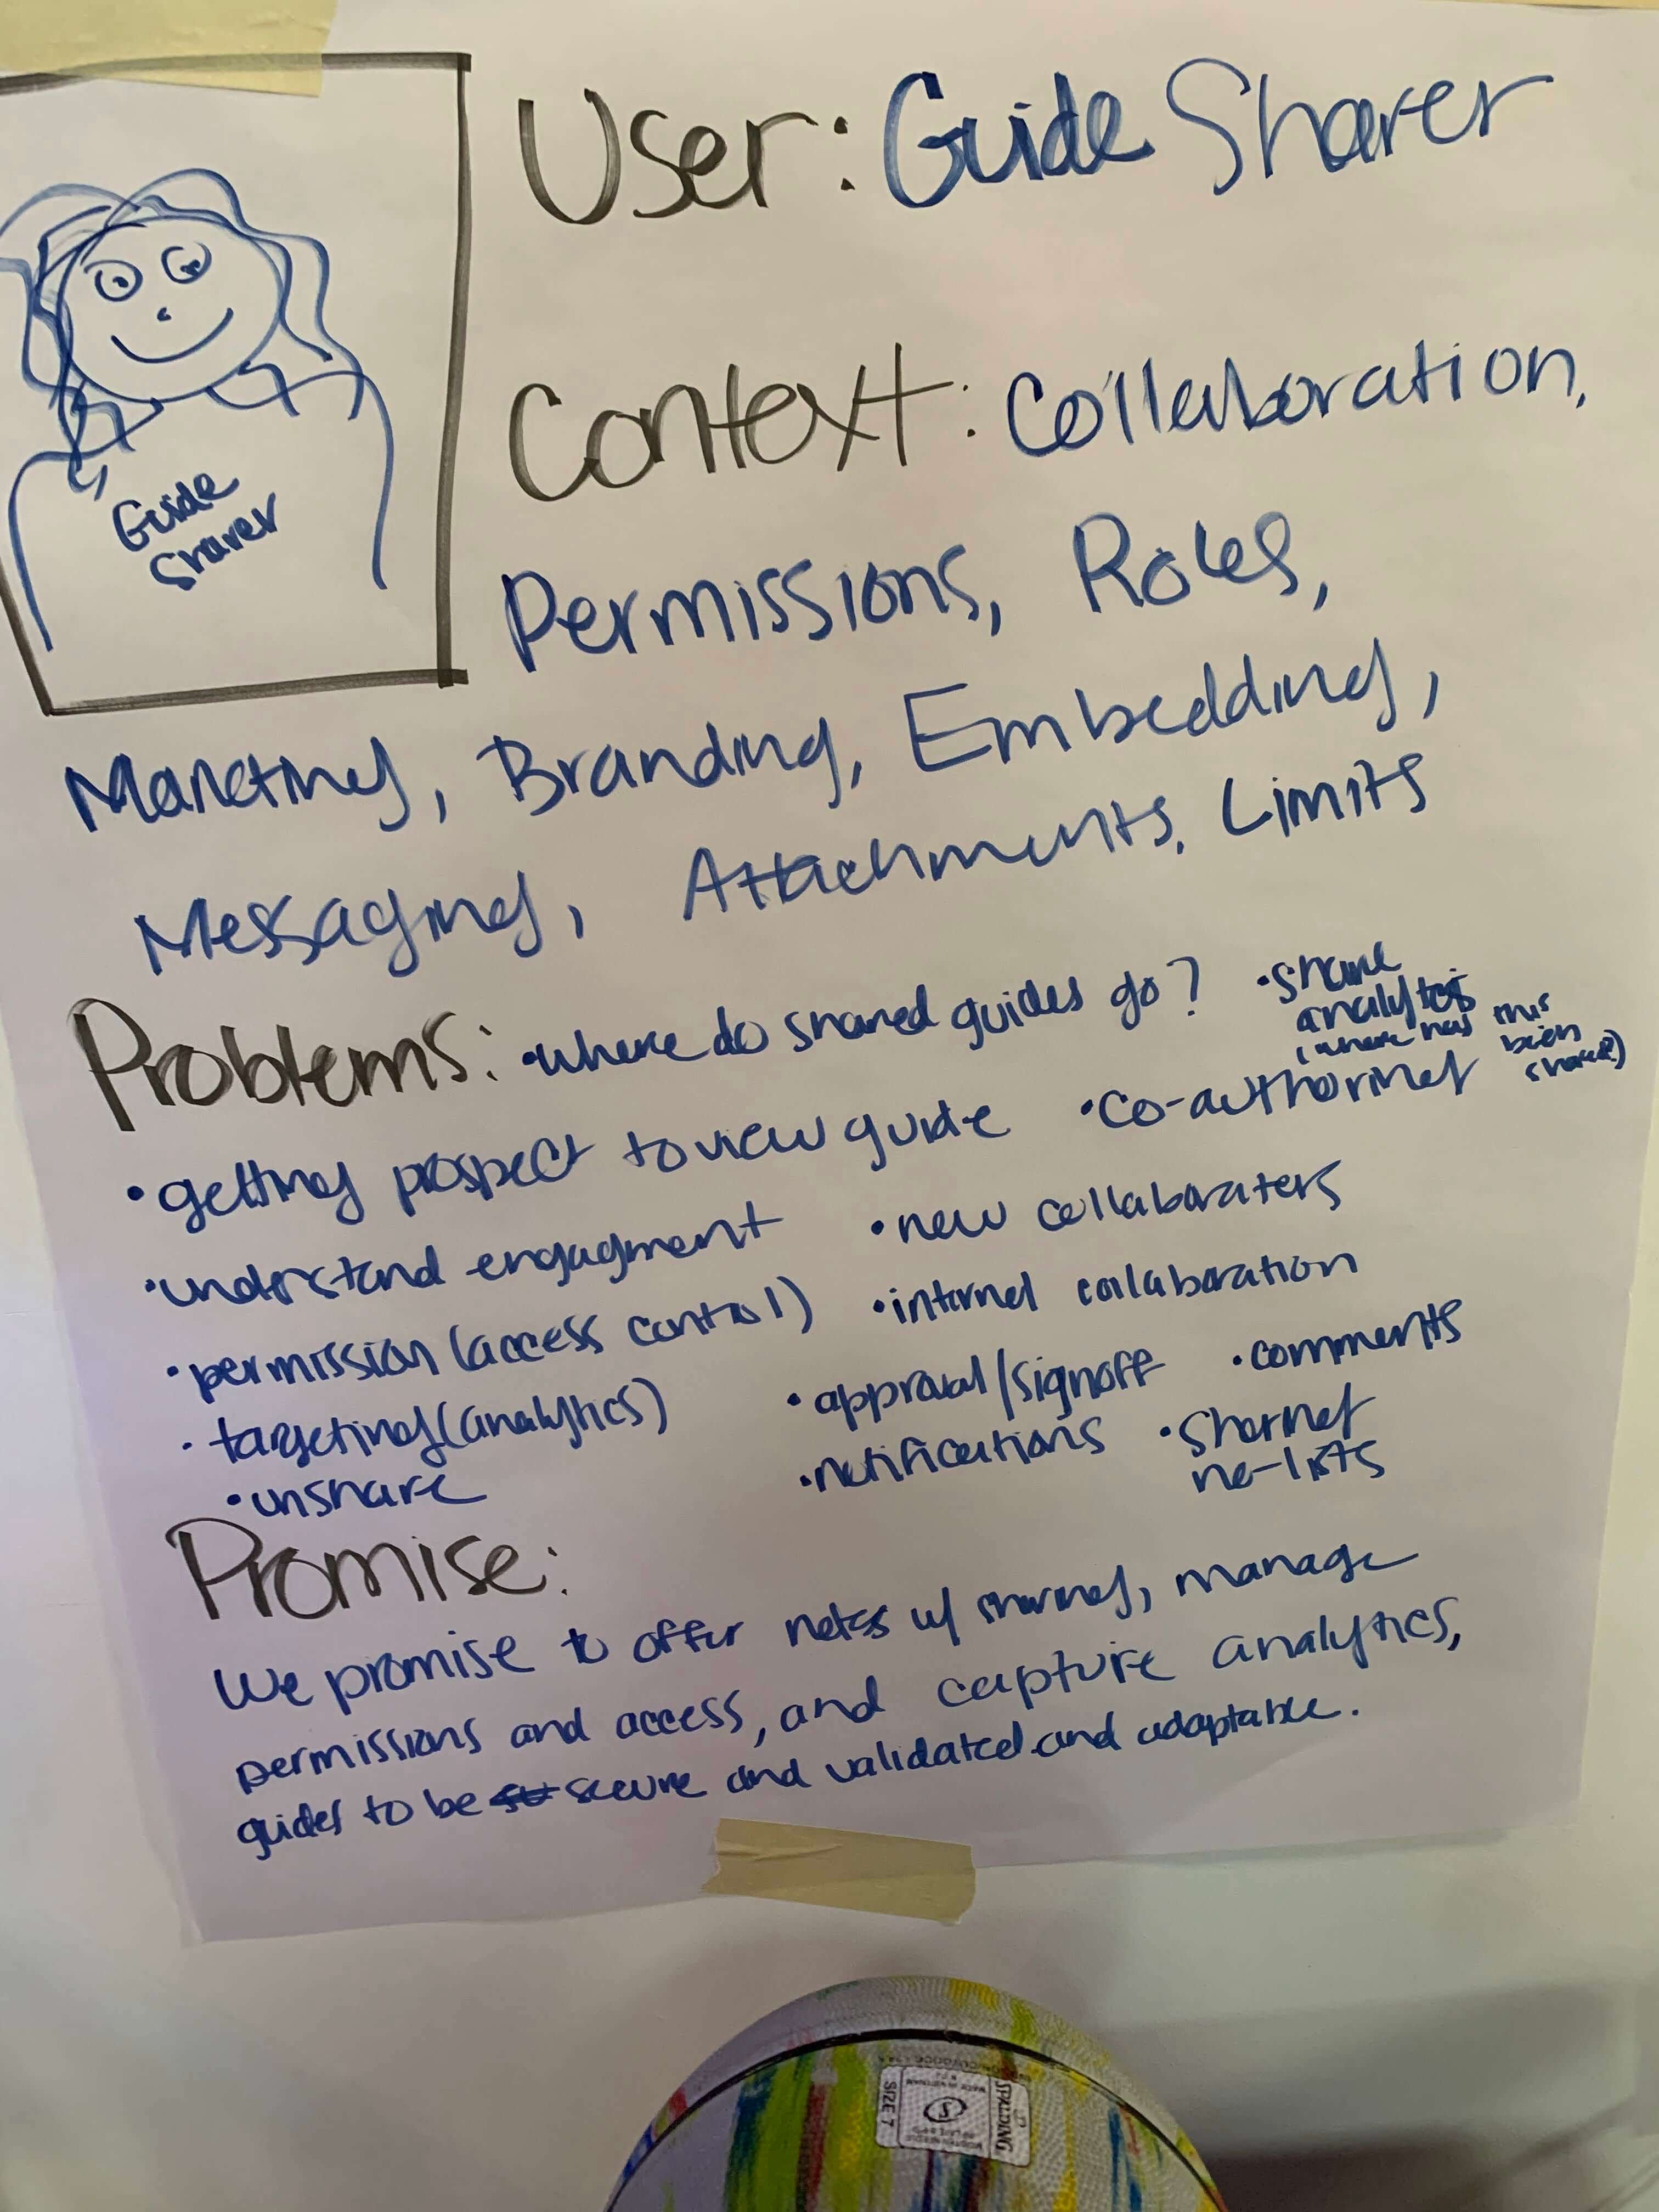 User: Guide Sharer
Guide
Sharer
Context: Collaboration,
Permissions, Roles,
Marketing, Branding, Embedding,
Messaging, Attachments, Limits
Problems: • where do shared guides go?
• share
analytics
(where has this
been
shared?)
• getting prospect to view guide
• co-authoring
• understand engagment
• new collaboraters
• permission (access control)
• internal collaboration
• targeting (analytics)
• approval/signoff
• comments
• unshare
• notifications
• Sharing
no-lists
Promise:
We promise to offer notes w/ sharing, manage
permissions and access, and capture analytics,
guides to be secure and validated and adaptable.
SPALDING
SIZE 7